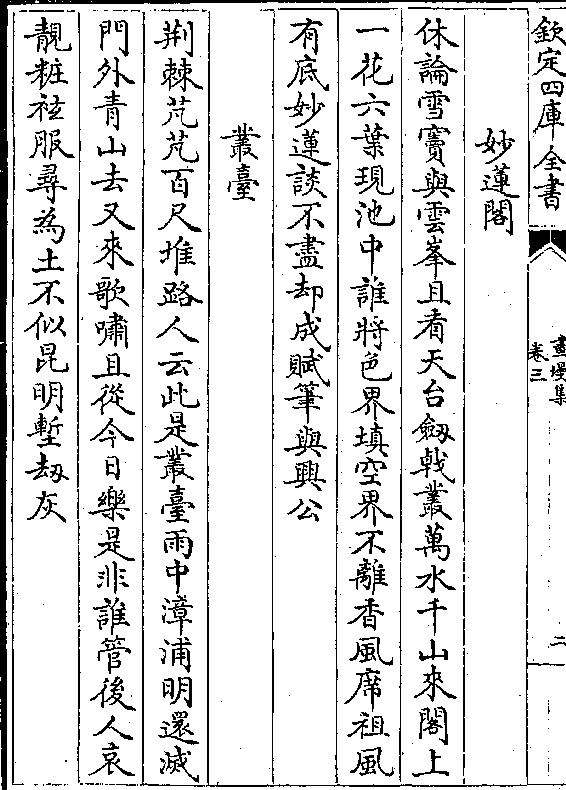 欽定四庫全書
畫墁集
卷三
二
妙蓮閣
休論雪竇與雲峯且看天台劔㦸叢萬水千山來閣上
一花六葉現池中誰將色界填空界不離香風席祖風
有底妙蓮談不盡却成賦筆與興公
叢臺
荆棘芃芃百尺堆路人云此是叢臺雨中漳浦明還滅
門外青山去又來歌嘯且從今日樂是非誰管後人哀
靚粧袨服尋為土不似昆明塹劫灰